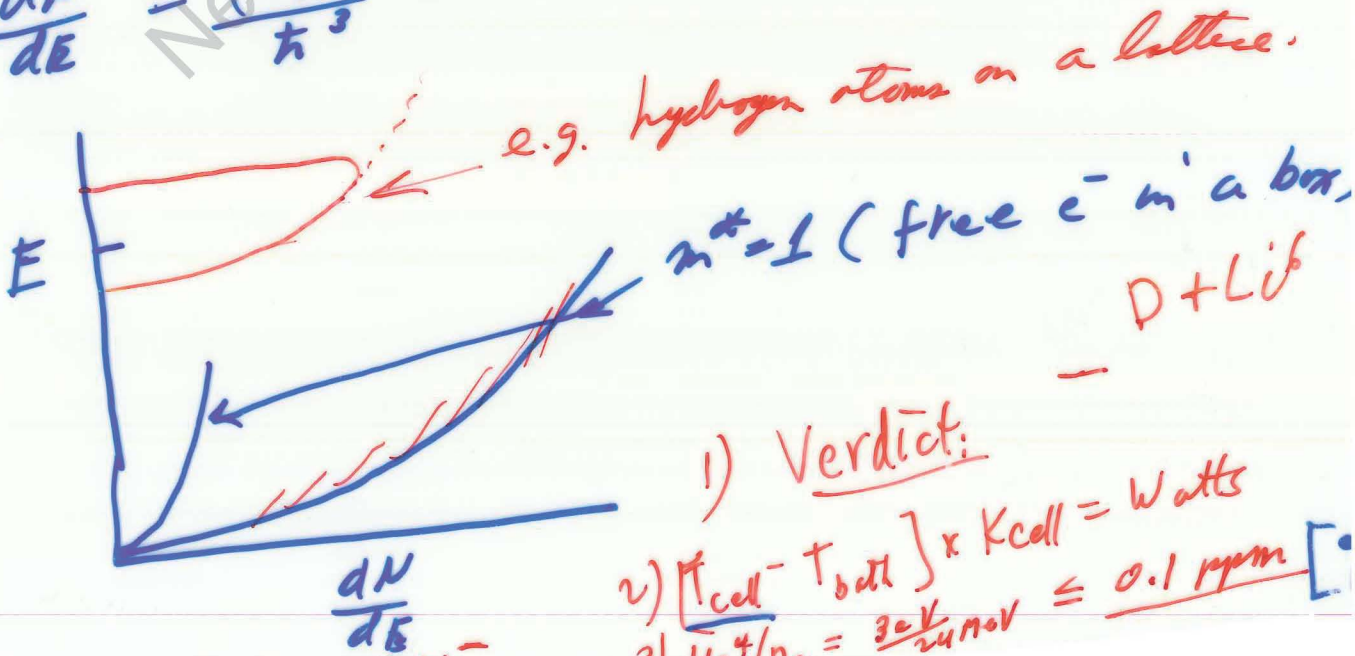 dE
ħ³
e.g. hydrogen atoms on a lattice.
E
m*=1 (free e⁻ in a box,
D + Li⁶
1) Verdict:
2) [Tcell - Tbath] x Kcell = Watts
= 3eV/24MeV ≤ 0.1 ppm [
dN
dE